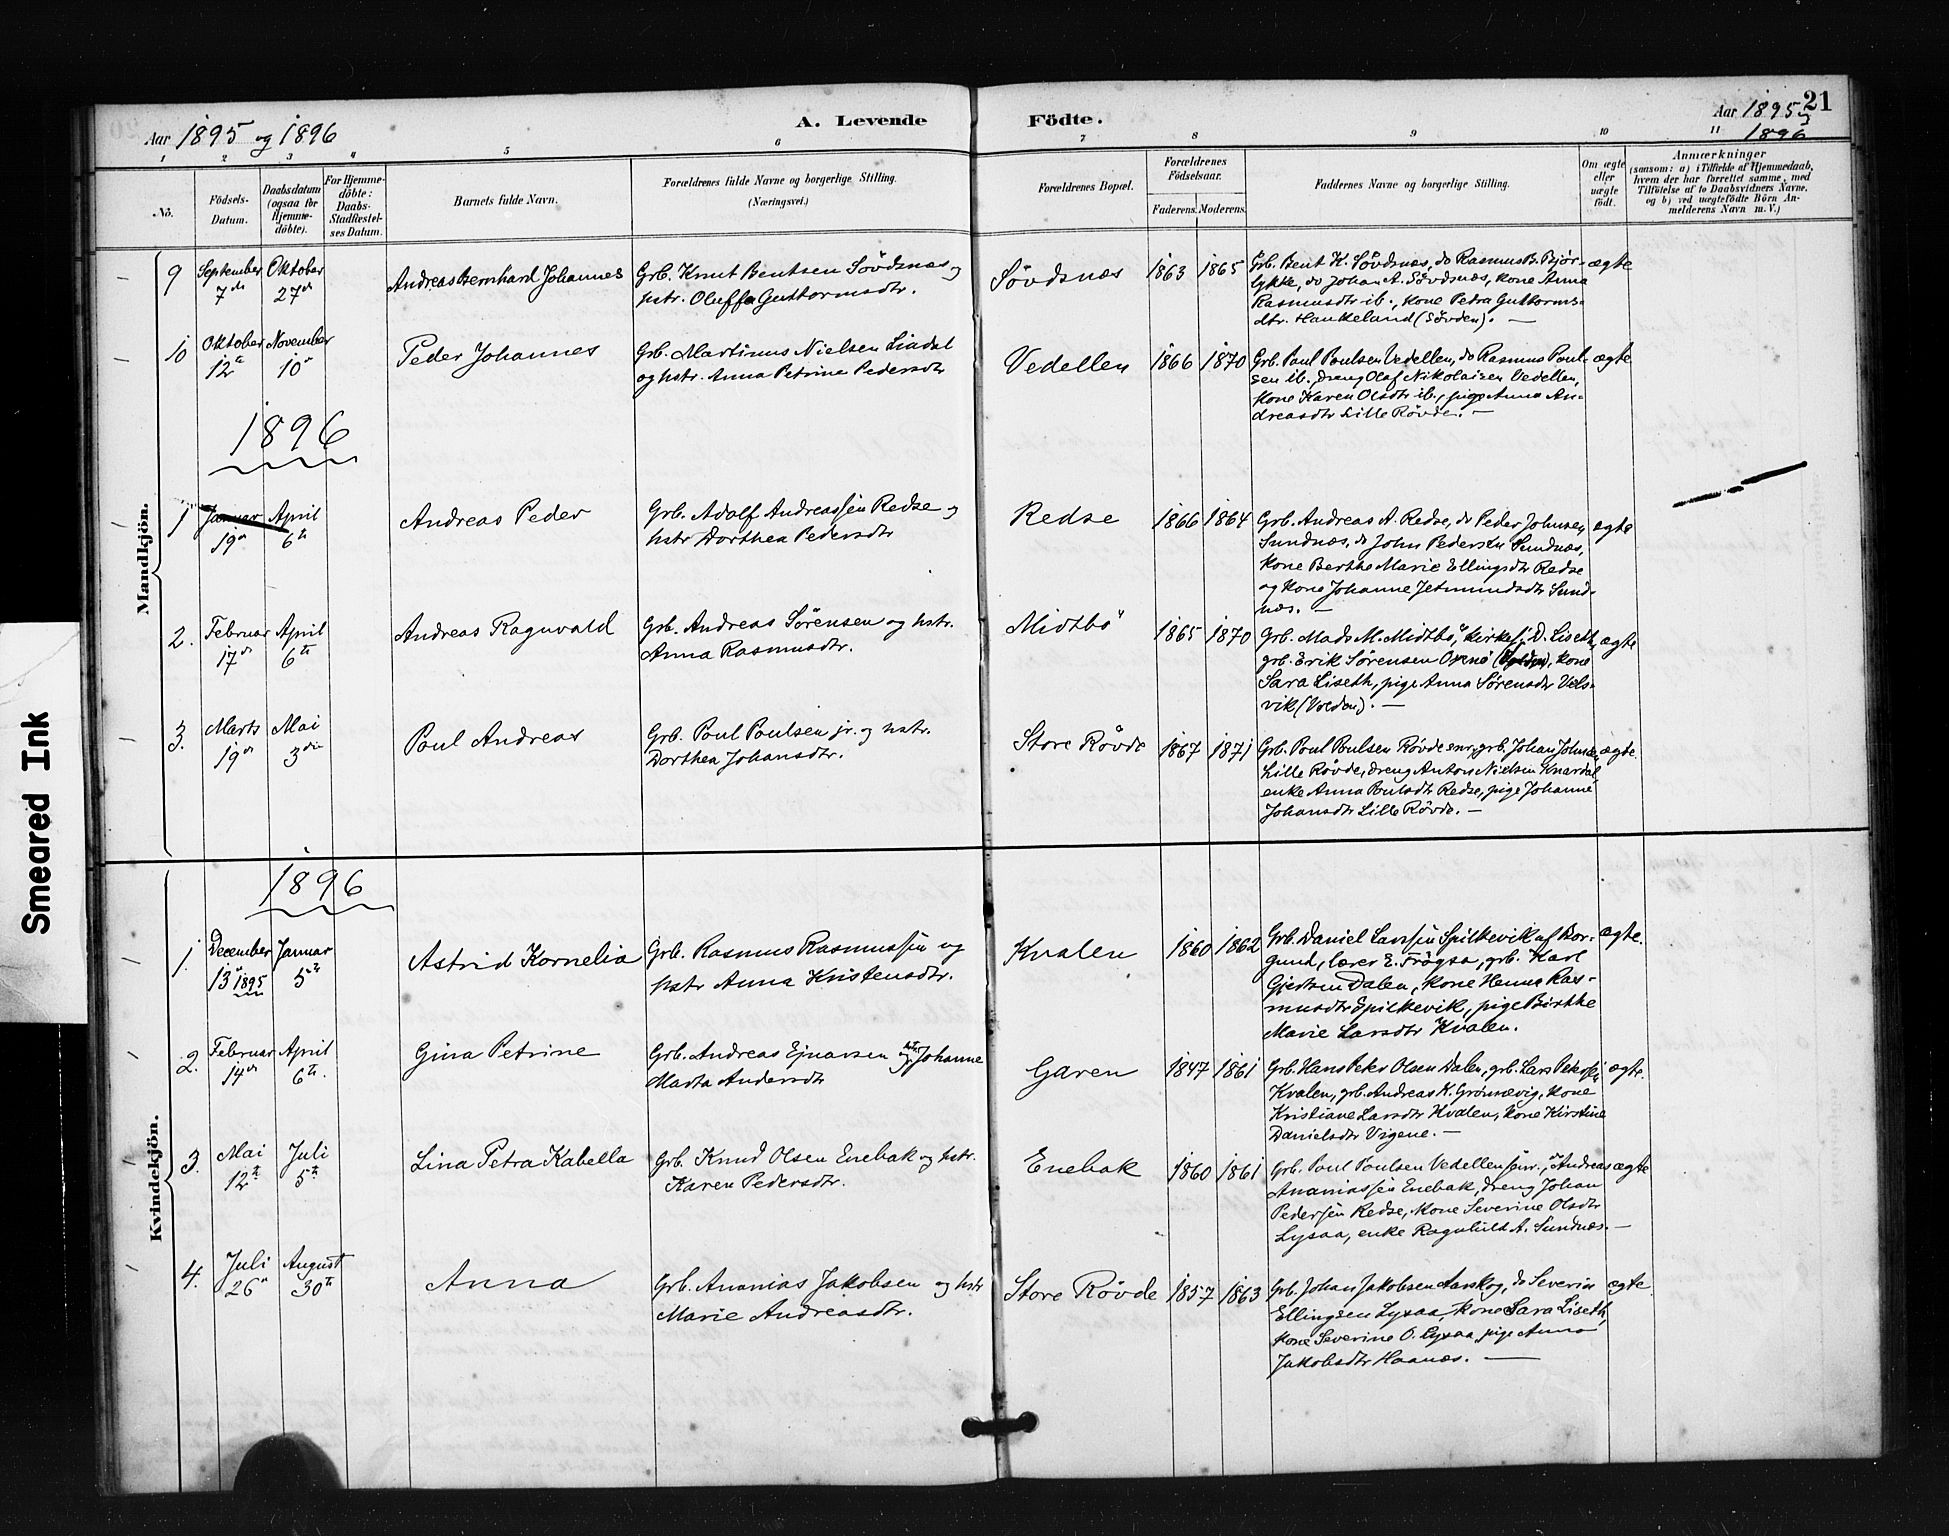 Smeared Ink
Aar 1895 og 1896
A. Levende Fødte.
Aar 1895 og 1896
21
1 2 3 4 5 6 7 8 9 10 11
No.
Fødsels-Datum.
Daabsdatum (ogsaa for Hjemmedøbte).
For Hjemmedøbte: Daabs-Stadfæstelses Datum.
Barnets fulde Navn.
Forældrenes fulde Navne og borgerlige Stilling.
(Næringsvei.)
Forældrenes Bopæl.
Forældrenes Fødselsaar.
Faderens. Moderens.
Faddernes Navne og borgerlige Stilling.
Om ægte eller uægte født.
Anmærkninger
(saasom: a) i Tilfælde af Hjemmedaab,
hvem der har forrettet samme, med
Tilføielse af to Daabsvidners Navne,
og b) ved uægtefødte Børn An-
melderens Navn m. V.)
Mandkjøn.
9 September 7de Oktober 27de Andreas Bernhard Johannes
Grb. Knut Bentsen Søvdsnæs og
hstr. Oluffa Guttormsdtr.
Søvdsnæs 1863 1865
Grb. Bent K. Søvdsnæs, do Rasmus B. Bjør-
lykke, do Johan A. Søvdsnæs, kone Anna
Rasmusdtr ib., kone Petra Guttorms-
dtr. Haukeland (Søvden). —
ægte
10 Oktober 12te November 10de Peder Johannes
Grb. Martinus Nielsen Liadal
og hstr. Anna Petrine Pedersdtr
Vedellen 1866 1870
Grb. Paul Poulsen Vedellen, do Rasmus Poul-
sen ib., dreng Olaf Nikolaisen Vedellen,
kone Karen Olsdtr ib., pige Anna An-
dreasdtr Lille Røvde. —
ægte
1896
1 Januar 19de April 6te Andreas Peder
Grb. Adolf Andreassen Redse og
hstr Dorthea Pedersdtr
Redse 1866 1864
Grb. Andreas A. Redse, do Peder Johnsen
Sundnæs, do John Pedersen Sundnæs,
kone Berthe Marie Ellingsdtr Redse
og kone Johanne Jetmundsdtr Sund-
næs. —
ægte
2. Februar 17de April 6te Andreas Ragnvald
Grb. Andreas Sørensen og hstr.
Anna Rasmusdtr.
Midtbö 1865 1870
Grb. Mads M. Midtbö, kirkes. D. Liseth,
grb. Erik Sørensen kone
Sara Liseth, pige Anna Sørensdtr Vels-
vik (Volden). —
ægte
3. Marts 19de Mai 3die Poul Andreas
Grb. Poul Poulsen jr. og hstr.
Dorthea Johansdtr.
Store Røvde 1867 1871
Grb. Poul Poulsen Røvde senr, grb. Johan Johnsen
Lille Røvde, dreng Anton Nielsen Knardal
enke Anna Poulsdtr Redse, pige Johanne
Johansdtr Lille Røvde. —
ægte.
Kvindekjøn.
1896
1. December 13de 1895 Januar 5te Astrid Kornelia
Grb. Rasmus Rasmussen og
hstr Anna Kristensdtr.
Kvalen 1860 1862
Grb. Daniel Larssen Spilkevik af Bor-
gund, lærer E. Frögsa, grb. Karl
Gjertsen Dalen, kone Hanna Ras-
musdtr Spilkevik, pige Birthe
Marie Larsdtr Kvalen.
ægte.
2. Februar 14de April 6te. Gina Petrine
Grb. Andreas Ejnarsen og hstr. Johanne
Marta Andersdtr
Garen 1847 1861
Grb. Hans Peter Olsen Dalen, grb. Lars Petersen
Kvalen, grb. Andreas K. Grønnevig, kone
Kristiane Larsdtr Kvalen, kone Kirstine
Danielsdtr Vigene. —
ægte.
3. Mai 12te Juli 5te Lina Petra Kabella
Grb. Knud Olsen Enebak og hstr.
Karen Pedersdtr.
Enebak 1860 1861
Grb. Poul Poulsen Vedellen senr., do Andreas
Ananiassen Enebak, dreng Johan
Pedersen Redse, kone Severine Olsdtr
Lysaa, enke Ragnhild A. Sundnæs. —
ægte
4. Juli 26de August 30te Anna
Grb. Ananias Jakobsen og hstr
Marie Andreasdtr.
Store Røvde 1857 1863
Grb. Johan Jakobsen Aarskog, do Severin
Ellingsen Lysaa, kone Sara Liseth,
kone Severine O. Lysaa, pige Anna
Jakobsdtr Haanæs. —
ægte